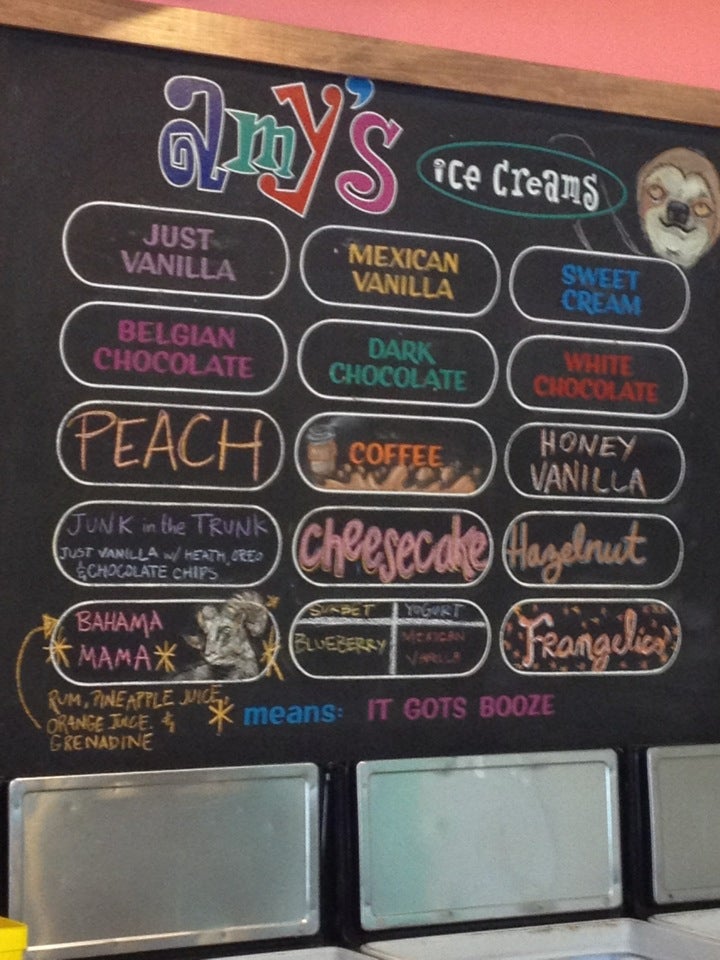 amy's
ice creams
JUST
VANILLA
MEXICAN
VANILLA
SWEET
CREAM
BELGIAN
CHOCOLATE
DARK
CHOCOLATE
WHITE
CHOCOLATE
PEACH
COFFEE
HONEY
VANILLA
JUNK in the TRUNK
JUST VANILLA w/ HEATH, OREO
& CHOCOLATE CHIPS
cheesecake
Hazelnut
BAHAMA
MAMA*
RUM, PINEAPPLE JUICE,
ORANGE JUICE, &
GRENADINE
SORBET
BLUEBERRY
YOGURT
MEXICAN
VANILLA
Frangelico
* means: IT GOTS BOOZE